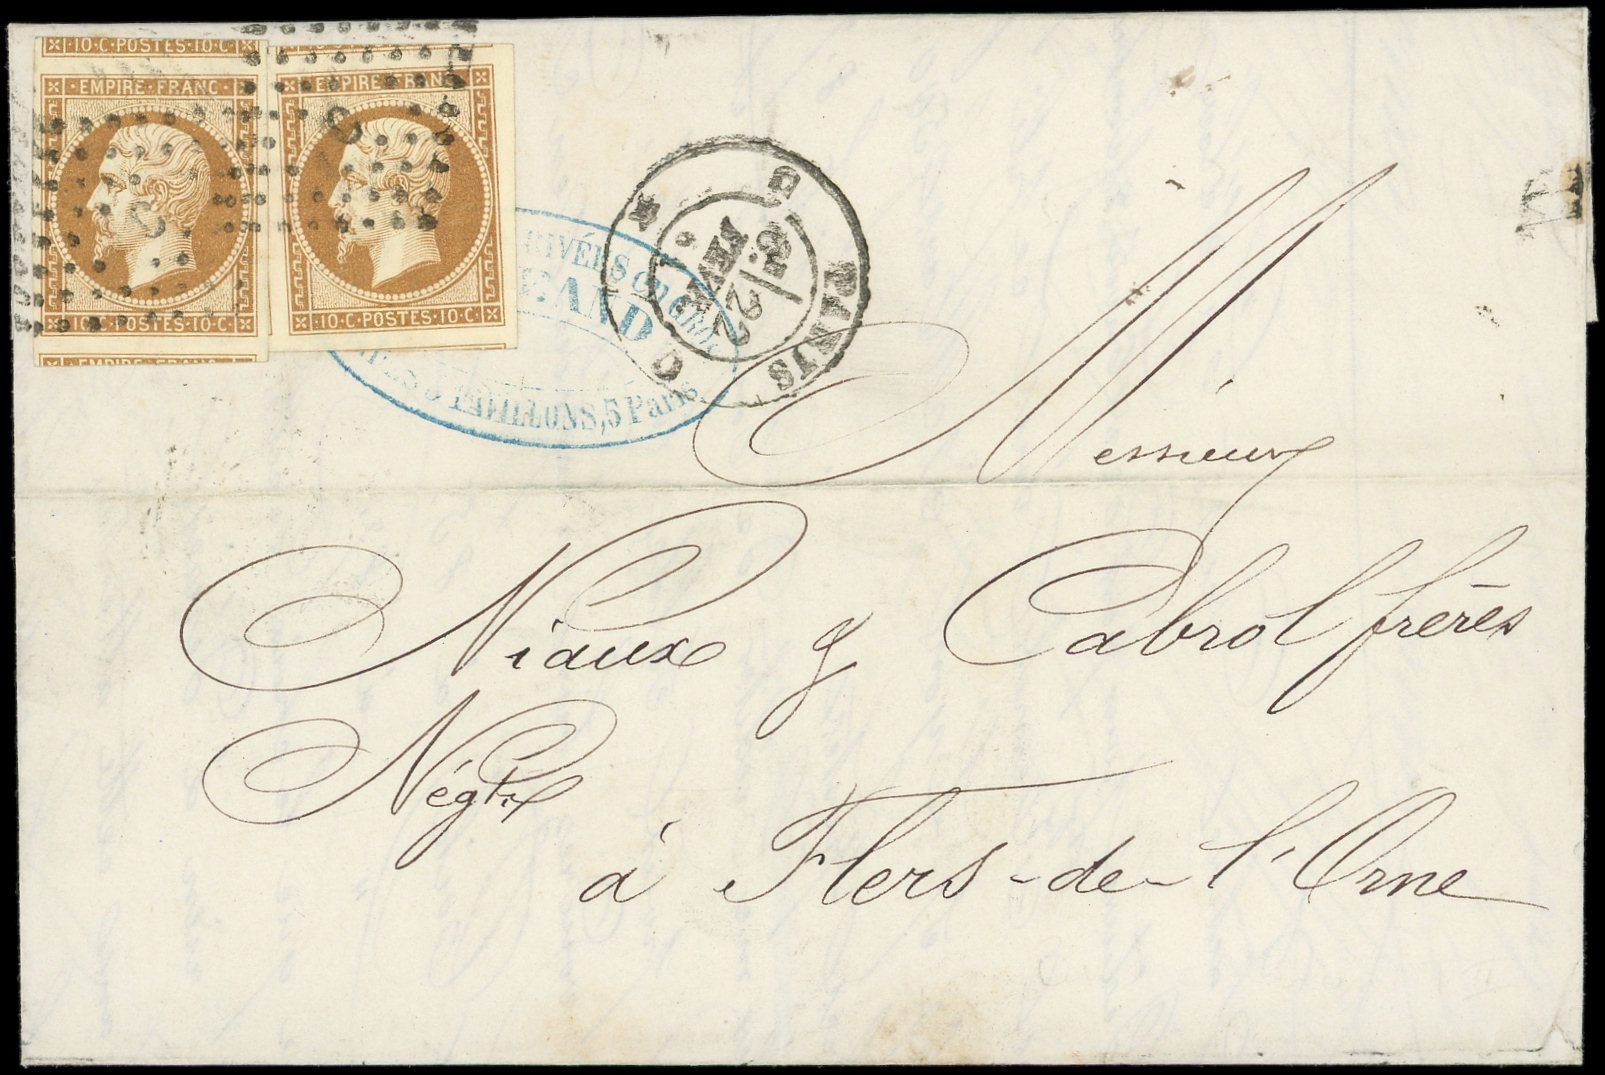 10·C·POSTES·10·C
EMPIRE·FRANC
10·C·POSTES·10·C
EMPIRE FRANC
EMPIRE·FRANC
10·C·POSTES·10·C
PARIS
22
FEVR.
PAVILLONS, 5 Paris
Messieurs
Niaux & Cabrol frères
Négts
à Flers-de-l'Orne